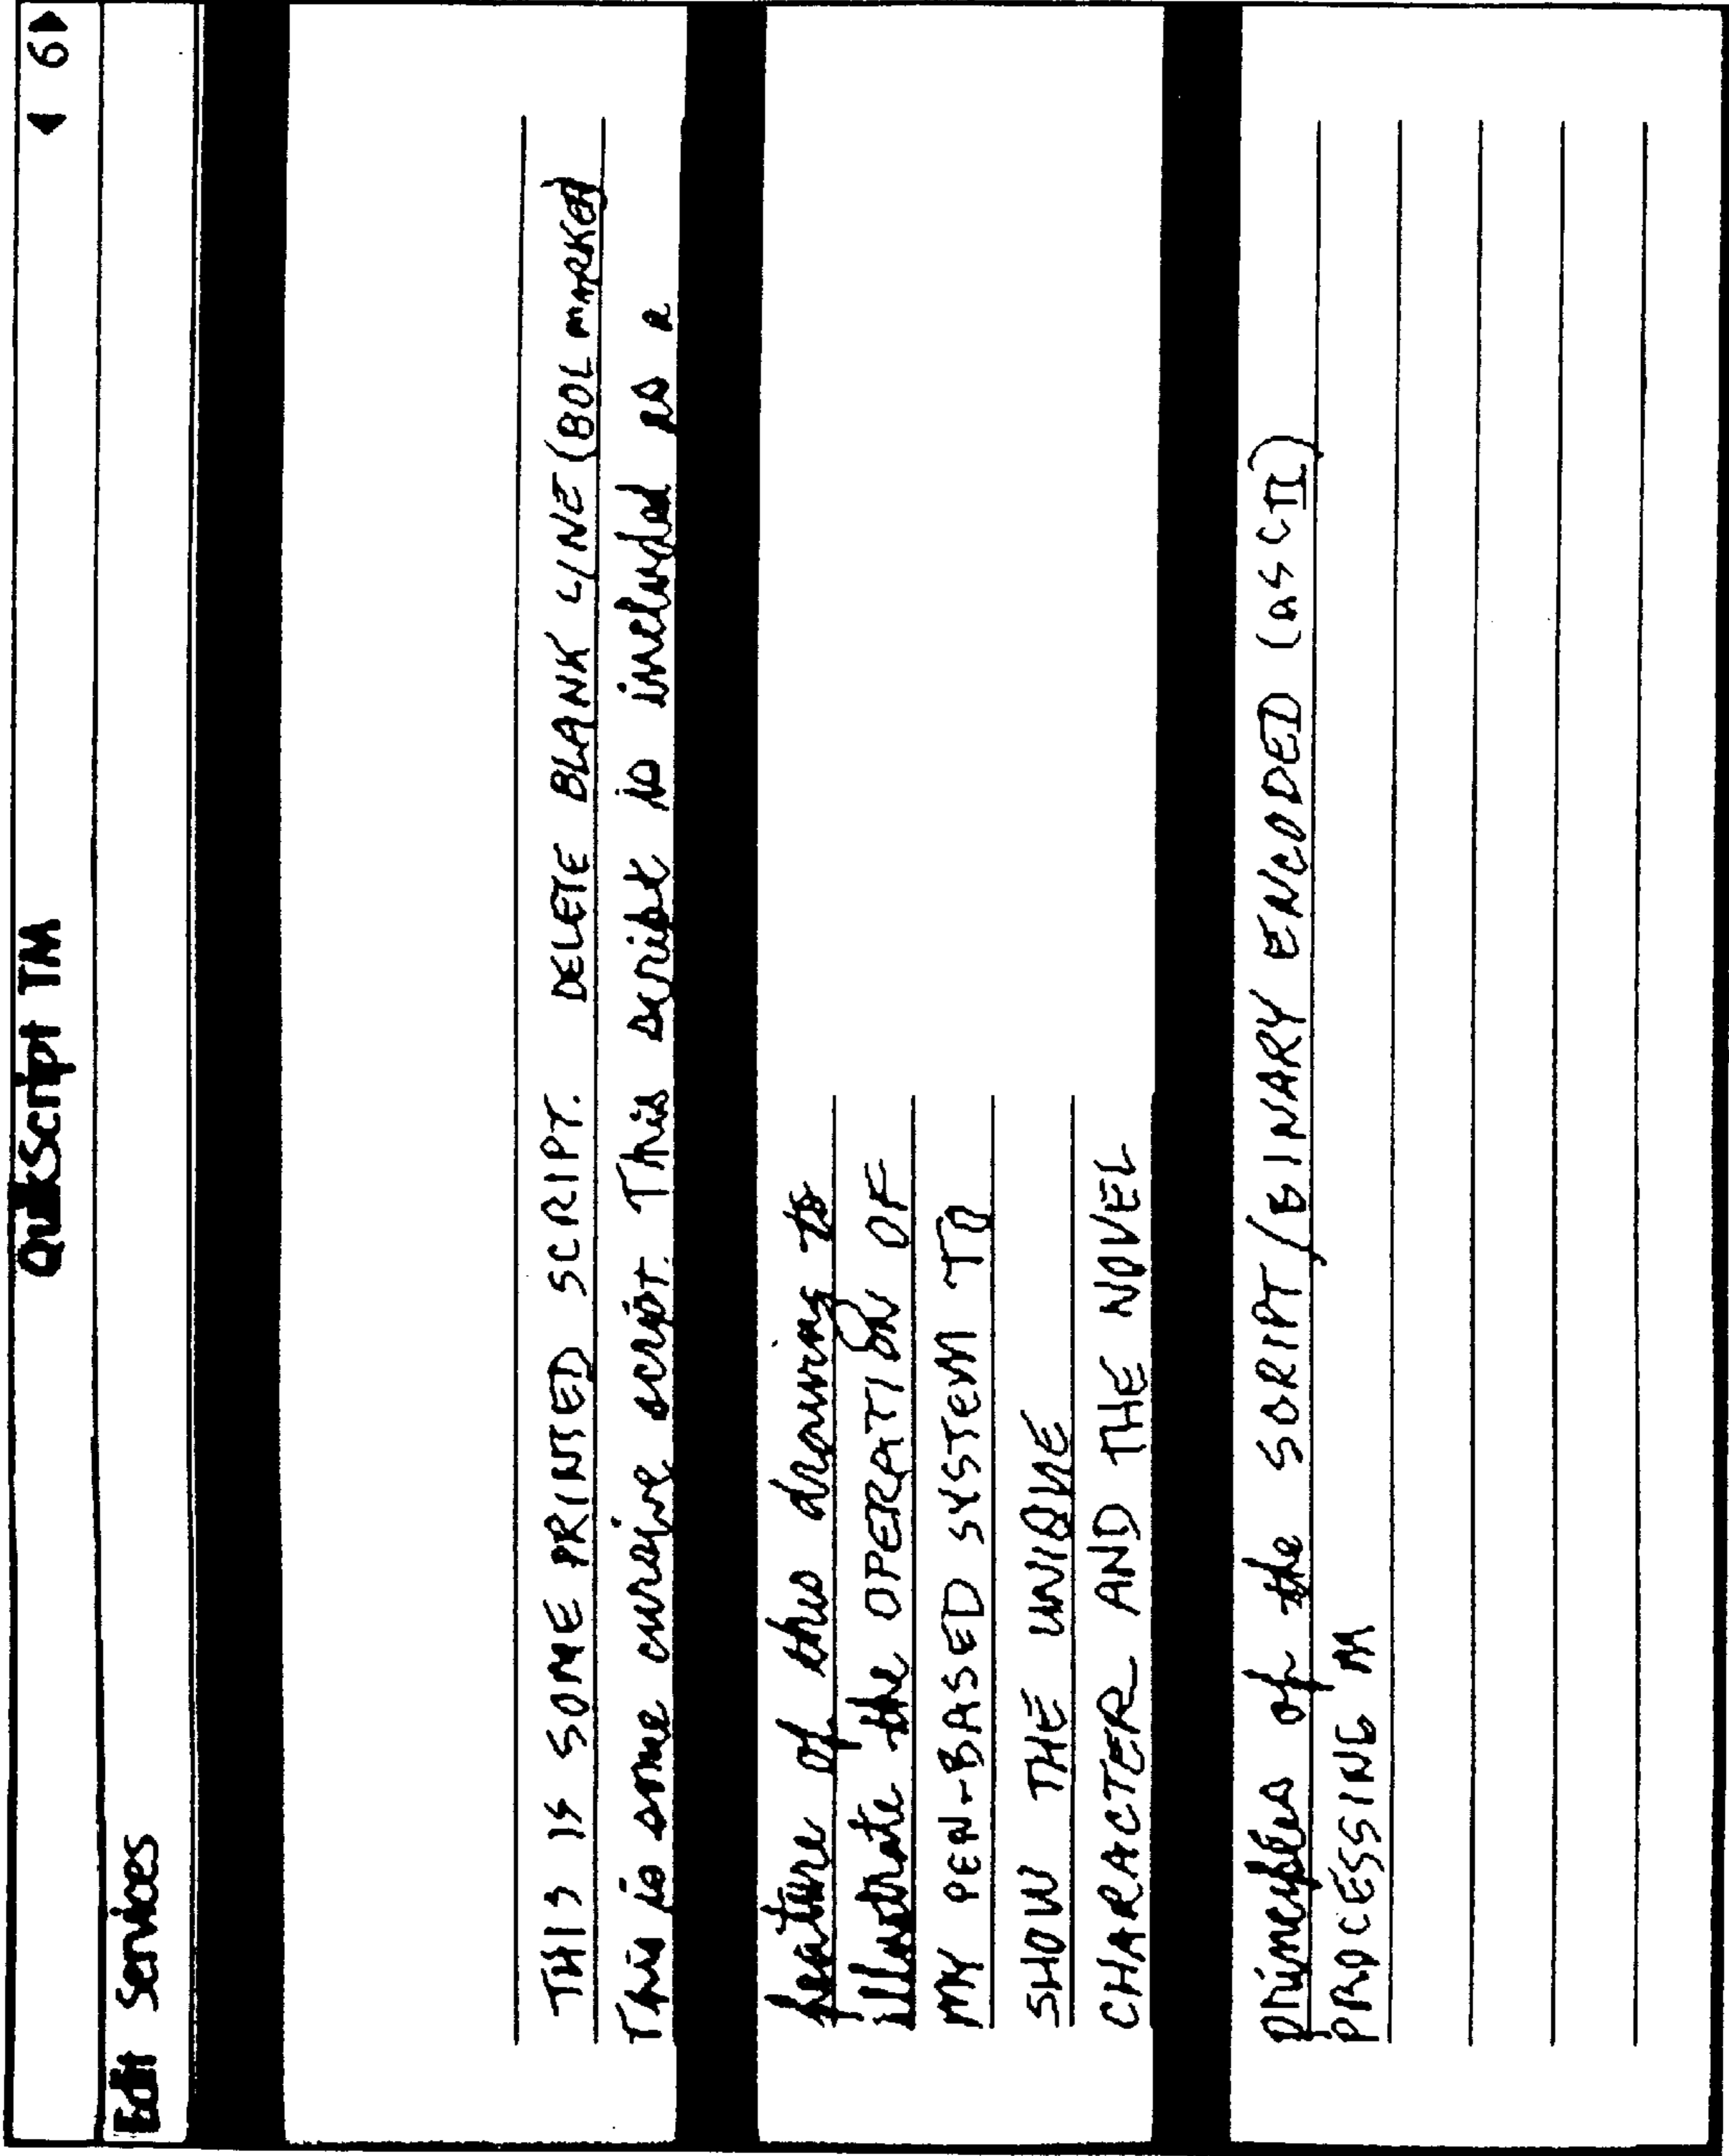 QuikScript TM ◀ 6 ▶
Edit Services
THIS IS SOME PRINTED SCRIPT. DELETE BLANK LINE (BOL MARKED
This is some cursive script. This script is included as a
feature of this drawing to
illustrate the OPERATION OF
MY PEN-BASED SYSTEM TO
SHOW THE UNIQUE
CHARACTER AND THE NOVEL
principles of the SCRIPT/BINARY ENCODED (ASCII)
PROCESSING M